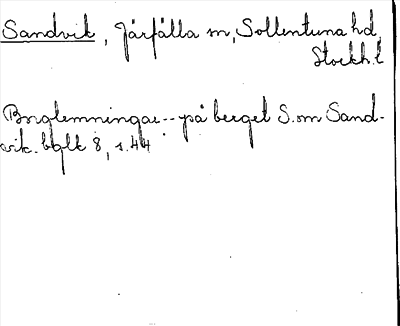 Sandvik, Järfälla sn, Sollentuna hd,
Stockh. l
Borglemningar -- på berget S. om Sand-
vik. 8, s. 44